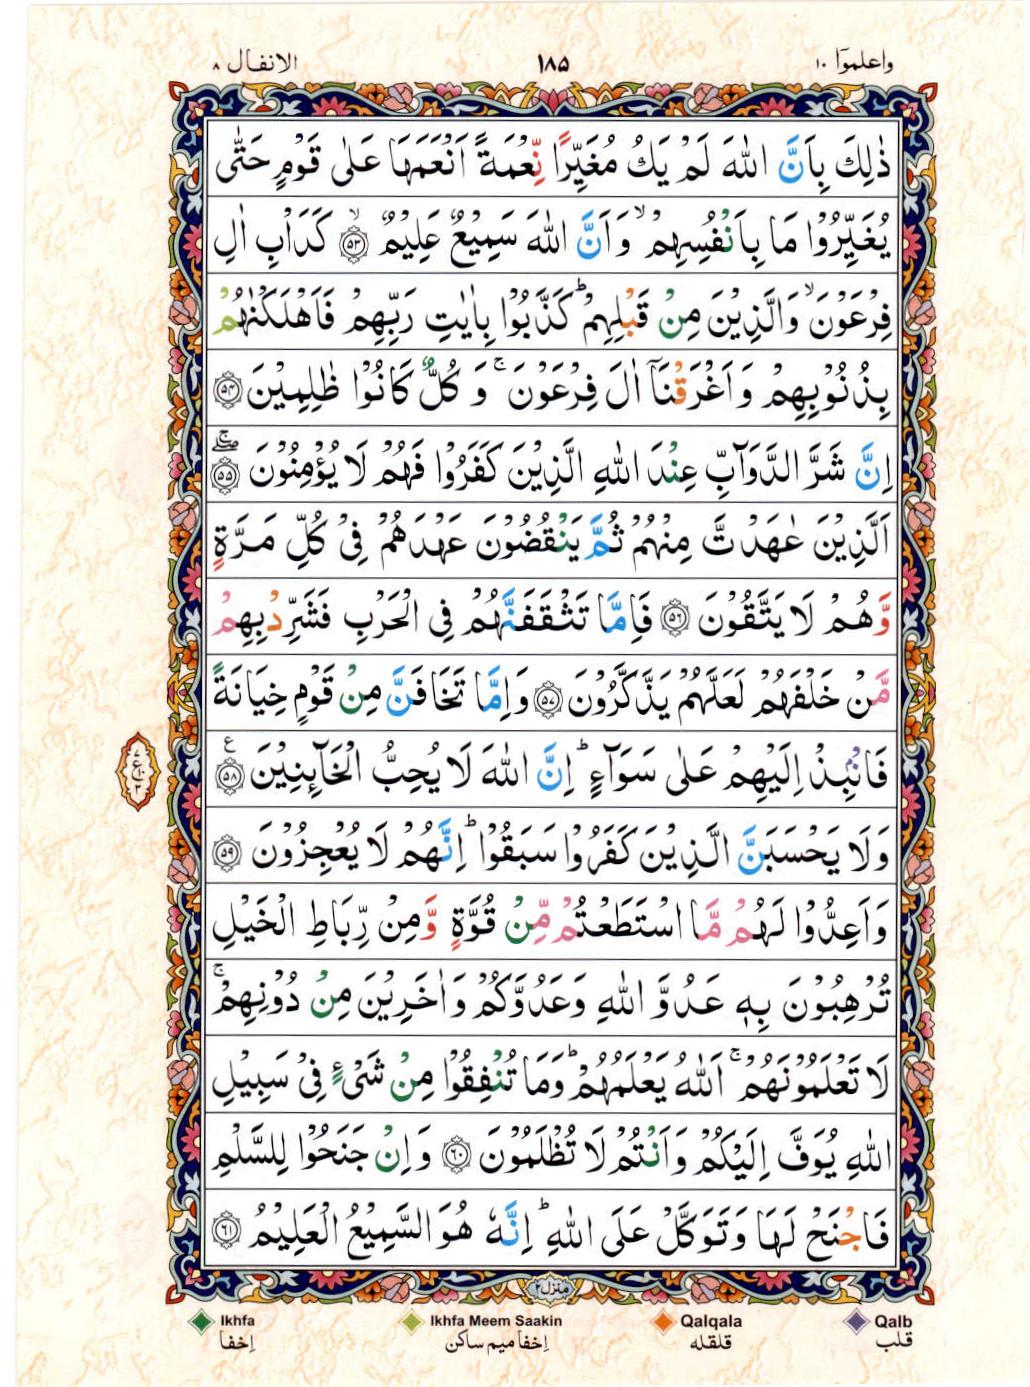 واعلموٓا ١٠
١٨۵
الانفال ٨
ذٰلِكَ بِاَنَّ اللّٰهَ لَمْ يَكُ مُغَيِّرًا نِّعْمَةً اَنْعَمَهَا عَلٰى قَوْمٍ حَتّٰى
يُغَيِّرُوْا مَا بِاَنْفُسِهِمْ ۙ وَاَنَّ اللّٰهَ سَمِيْعٌ عَلِيْمٌ ۙ ﴿۵۳﴾ كَدَاْبِ اٰلِ
فِرْعَوْنَ ۙ وَالَّذِيْنَ مِنْ قَبْلِهِمْ ؕ كَذَّبُوْا بِاٰيٰتِ رَبِّهِمْ فَاَهْلَكْنٰهُمْ
بِذُنُوْبِهِمْ وَاَغْرَقْنَاۤ اٰلَ فِرْعَوْنَ ۚ وَكُلٌّ كَانُوْا ظٰلِمِيْنَ ﴿۵۴﴾
اِنَّ شَرَّ الدَّوَآبِّ عِنْدَ اللّٰهِ الَّذِيْنَ كَفَرُوْا فَهُمْ لَا يُؤْمِنُوْنَ ۖۚ ﴿۵۵﴾
اَلَّذِيْنَ عٰهَدْتَّ مِنْهُمْ ثُمَّ يَنْقُضُوْنَ عَهْدَهُمْ فِيْ كُلِّ مَرَّةٍ
وَّهُمْ لَا يَتَّقُوْنَ ﴿۵۶﴾ فَاِمَّا تَثْقَفَنَّهُمْ فِى الْحَرْبِ فَشَرِّدْ بِهِمْ
مَّنْ خَلْفَهُمْ لَعَلَّهُمْ يَذَّكَّرُوْنَ ﴿۵۷﴾ وَاِمَّا تَخَافَنَّ مِنْ قَوْمٍ خِيَانَةً
فَانْۢبِذْ اِلَيْهِمْ عَلٰى سَوَآءٍ ؕ اِنَّ اللّٰهَ لَا يُحِبُّ الْخَآئِنِيْنَ ﴿۵۸﴾ ع
وَلَا يَحْسَبَنَّ الَّذِيْنَ كَفَرُوْا سَبَقُوْا ؕ اِنَّهُمْ لَا يُعْجِزُوْنَ ﴿۵۹﴾
وَاَعِدُّوْا لَهُمْ مَّا اسْتَطَعْتُمْ مِّنْ قُوَّةٍ وَّمِنْ رِّبَاطِ الْخَيْلِ
تُرْهِبُوْنَ بِهٖ عَدُوَّ اللّٰهِ وَعَدُوَّكُمْ وَاٰخَرِيْنَ مِنْ دُوْنِهِمْ ۚ
لَا تَعْلَمُوْنَهُمْ ۚ اَللّٰهُ يَعْلَمُهُمْ ؕ وَمَا تُنْفِقُوْا مِنْ شَىْءٍ فِيْ سَبِيْلِ
اللّٰهِ يُوَفَّ اِلَيْكُمْ وَاَنْتُمْ لَا تُظْلَمُوْنَ ﴿۶۰﴾ وَاِنْ جَنَحُوْا لِلسَّلْمِ
فَاجْنَحْ لَهَا وَتَوَكَّلْ عَلَى اللّٰهِ ؕ اِنَّهٗ هُوَ السَّمِيْعُ الْعَلِيْمُ ﴿۶۱﴾
منزل ٢
Ikhfa Ikhfa Meem Saakin Qalqala Qalb
إخفا إخفا میم ساکن قلقله قلب